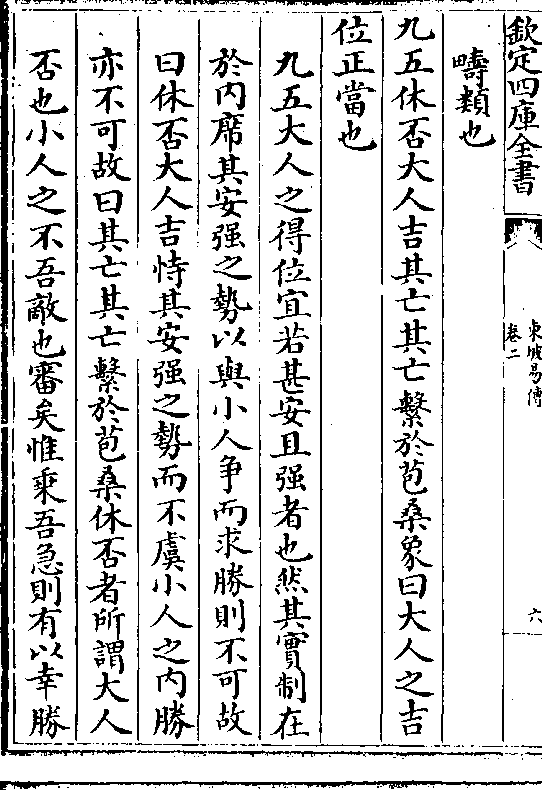 欽定四庫全書
東坡易傳
卷二
六
疇類也
九五休否大人吉其亡其亡繫於苞桑象曰大人之吉
位正當也
九五大人之得位宜若甚安且强者也然其實制在
於内席其安强之勢以與小人争而求勝則不可故
曰休否大人吉恃其安强之勢而不虞小人之内勝
亦不可故曰其亡其亡繫於苞桑休否者所謂大人
否也小人之不吾敵也審矣惟乘吾急則有以幸勝